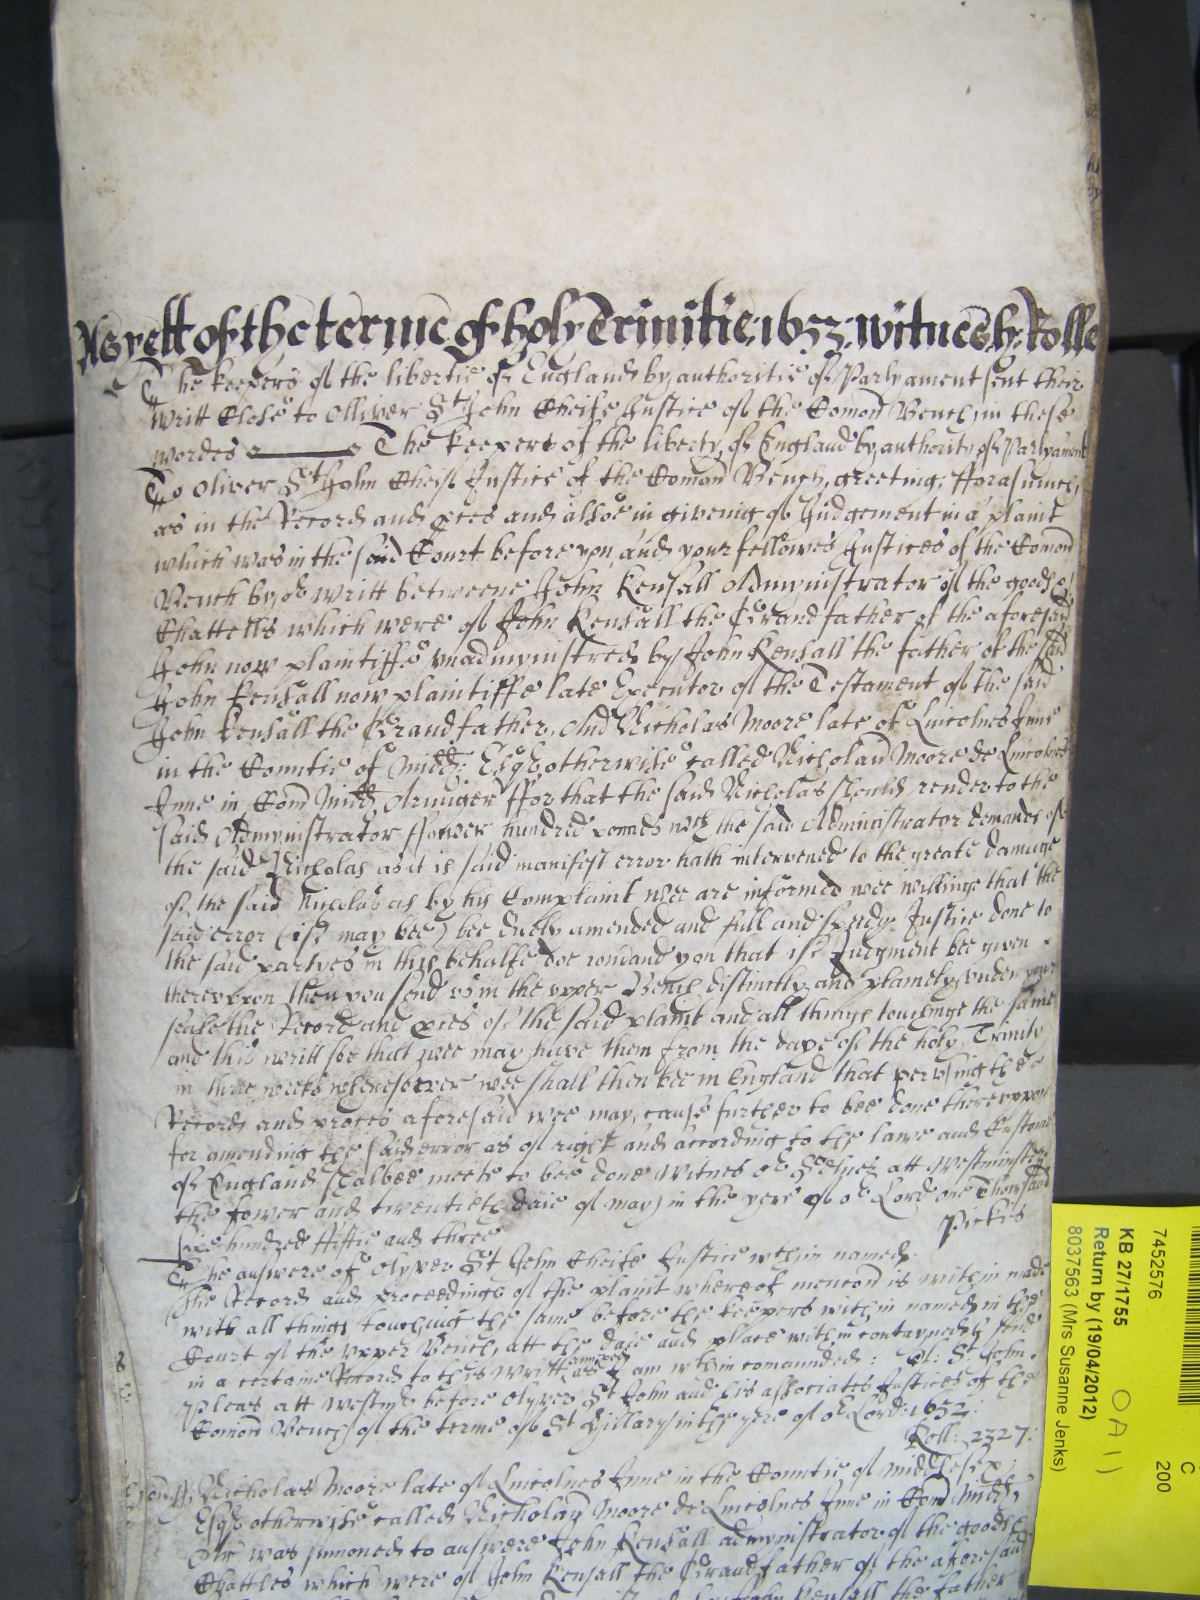 As yett of the terme of holy Trinitie 1653 witnes H: Rolle
The keepers of the libertie of England by authoritie of Parlyament sent their
writt Close to Olliver St John Cheife Justice of the Comon Bench in these
wordes The keepers of the liberty of England by authority of Parlyament
To Oliver St John Cheife Justice of the Comon Bench greeting, fforasmuch
as in the Record and pces and alsoe in giveing of Judgement in a plaint
which was in the said Court before you and your fellowes Justices of the Comon
Bench by or writt betweene John Kensall Administrator of the goods &
Chattells which were of John Kensall the Grandfather of the aforesaid
John now plaintiffe unadministred by John Kensall the father of the said
John Kensall now plaintiffe late Executor of the Testament of the said
John Kensall the Grandfather, And Nicholas Moore late of Lincolnes Inne
in the Countie of Midd: Esqr otherwise called Nicholaū Moore de Lincolnes
Inne in Com Midd Armiger ffor that the said Nicholas should render to the
said Administrator ffower hundred pounds wch the said Administrator demands of
the said Nicholas as it is said manifest error hath intervened to the greate damage
of the said Nicolas as by his Complaint wee are informed wee willinge that the
said error (if may bee) bee duely amended and full and speedy Justice done to
the said partyes in this behalfe doe comand you that if Judgment bee given
thereuppon then you send us in the upper Bench distinctly and plainely under your
seale the Record and pces of the said plaint and all things touchinge the same
and this writt soe that wee may have them from the daye of the holy Trinity
in three weeks wheresoever wee shall then bee in England that perusing the
Records and proces aforesaid wee may cause further to bee done thereuppon
for amending the said error as of right and according to the lawe and Custome
of England shalbee meete to bee done Witnes or selves att Westminster
the fower and twentieth daie of may in the yere of or Lord one Thowsand
sixe hundred fiftie and three Pickis
The answere of Olyver St John Cheife Justice wthin named.
The Record and proceedings of the plaint whereof mencon is within made
with all things touching the same before the keepers within named in the
Court of the upper Bench, att the daie and place within contayned I send
in a certaine Record to this writt annexed as I am wthin comaunded: Ol: St John.
Pleas att Westmr before Olyver St John and his associates Justices of the
Comon Bench of the terme of St Hillary in the yere of or Lord: 1652:
Roll: 2327:
Nicholas Moore late of Lincolnes Inne in the Countie of Middlesex
Esqr otherwise called Nicholaū Moore de Lincolnes Inne in Com Midd,
Ar was sumoned to answere John Kensall administrator of the goods &
Chattles which were of John Kensall the Grandfather of the aforesaid
John Kensall the father
7452576
KB 27/1755
Return by (19/04/2012)
8037563 (Mrs Susanne Jenks)
C
200
OA 1)